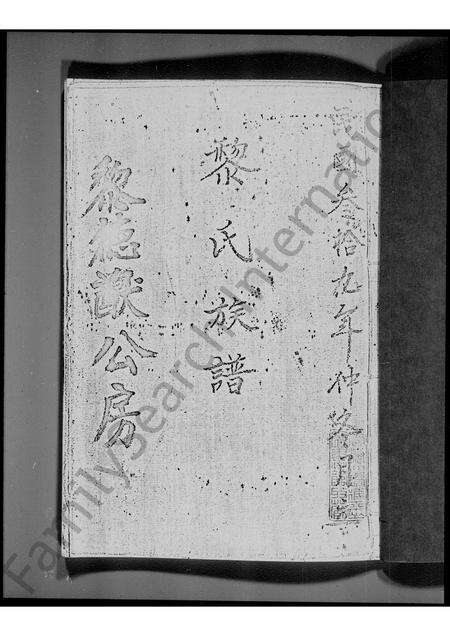 民國叁拾九年仲冬月
黎氏族譜
黎德謨公房
FamilySearch International